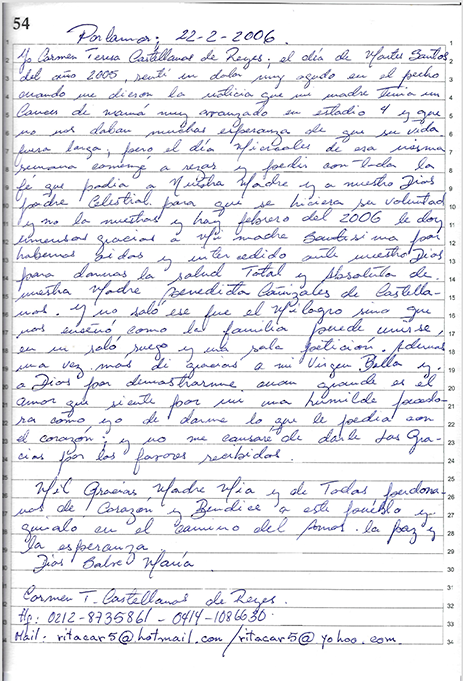 54
Porlamar; 22-2-2006.
Yo Carmen Teresa Castellanos de Reyes; el día de Martes Santos
del año 2005, sentí un dolor muy agudo en el pecho
cuando me dieron la noticia que mi madre tenía un
Cancer de mamá muy avanzado en estadio 4 y que
no nos daban muchas esperanza de que su vida
fuera larga; pero el día Miercoles de esa misma
semana comencé a rezar y pedir con toda la
fé que podia a Nuestra Madre y a nuestro Dios
padre Celestial para que se hiciera su voluntad
y no la nuestras y hoy febrero del 2006 le doy
inmensas gracias a Mi madre Santisima por
habernos oidos y intercedido ante nuestro Dios
para darnos la salud Total y Absoluta de
nuestra Madre, Benedicta Cañizales de Castella-
nos. y no soló ese fue el Milagro sino que
nos enseñó como la familia puede unirse,
en un soló ruego y una sola petición. Ademas
una vez mas di gracias a mi Virgen Bella y
a Dios por demostrarme cuan grande es el
amor que siente por mi una humilde pecado-
ra como yo de darme lo que le pedia con
el corazón: y no me cansaré de darle las Gra-
cias por los favores recibidos.
Mil Gracias Madre Mia y de Todas perdona-
nos de Corazón y Bendice a este pueblo y
guialo en el camino del amor. la paz y
la esperanza
Dios Salve María
Carmen T. Castellanos de Reyes.
0212-8735861 - 0414-1086630
Mail: ritacar5@hotmail.com / ritacar5@yohoo.com.